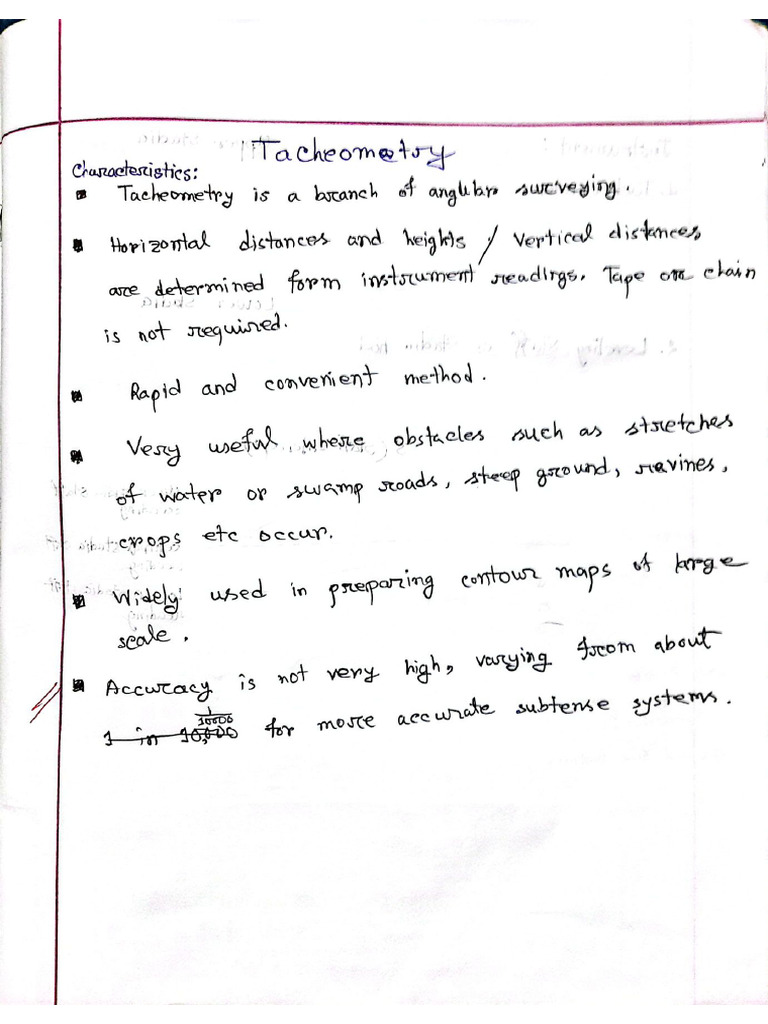 Tacheometry
Characteristics:
Tacheometry is a branch of angular surveying.
Horizontal distances and heights / vertical distances
are determined form instrument readings. Tape or chain
is not required.
Rapid and convenient method.
Very useful where obstacles such as stretches
of water or swamp roads, steep ground, ravines,
crops etc occur.
Widely used in preparing contour maps of large
scale.
Accuracy is not very high, varying from about
1/10000
1 in 10,000 for more accurate subtense systems.